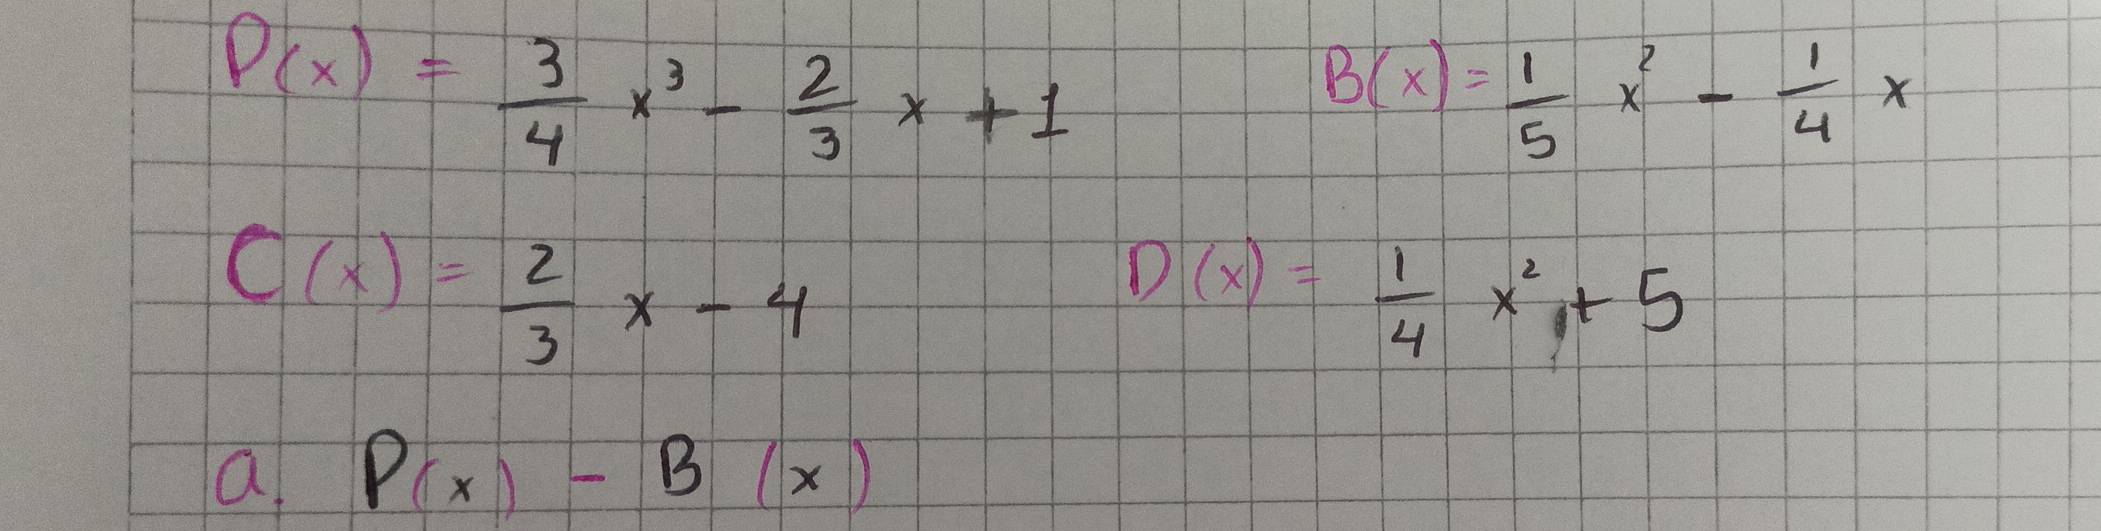 P(x) = 3/4 x³ - 2/3 x + 1 B(x) = 1/5 x² - 1/4 x
C(x) = 2/3 x - 4 D(x) = 1/4 x² + 5
a. P(x) - B(x)